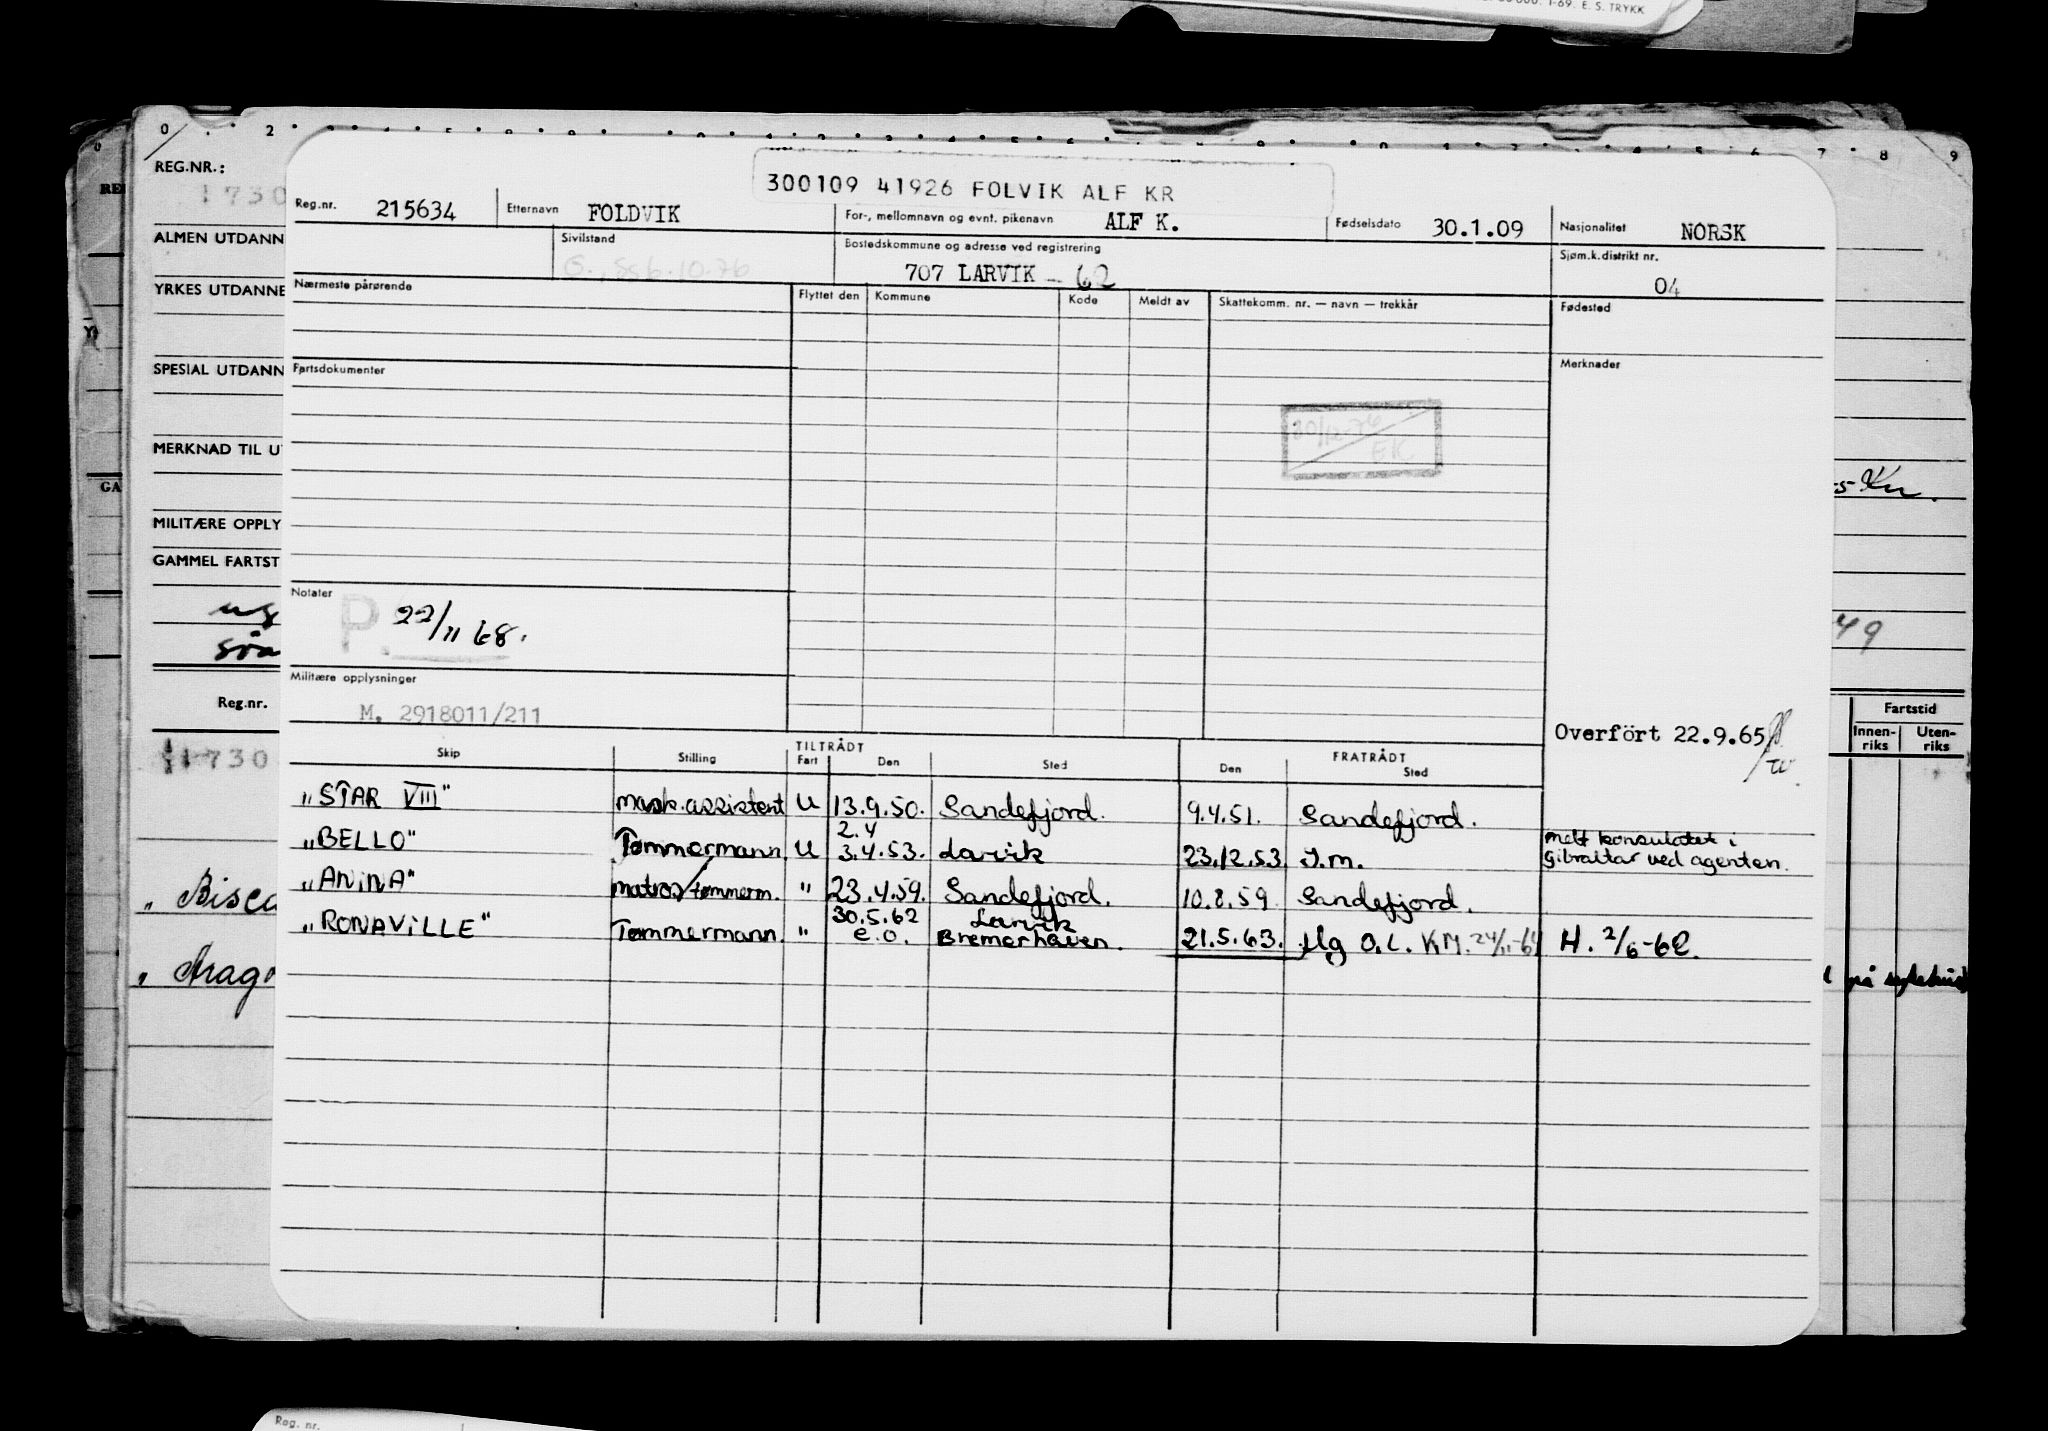 1-69. E. S. TRYKK
REG.NR.:
1730
ALMEN UTDANN
YRKES UTDANNE
SPESIAL UTDANN
MERKNAD TIL U
MILITÆRE OPPLY
GAMMEL FARTST
Reg.nr.
1730
„ Bisca
„ Arag
300109 41926 FOLVIK ALF KR
Reg.nr. 215634 Etternavn FOLDVIK For-, mellomnavn og evnt. pikenavn ALF K. Fødselsdato 30.1.09 Nasjonalitet NORSK
Sivilstand G., ss 6.10.76 Bostedskommune og adresse ved registrering 707 LARVIK - 62 Sjøm.k.distrikt nr. 04
Nærmeste pårørende Flyttet den Kommune Kode Meldt av Skattekomm. nr. — navn — trekkår Fødested
Fartsdokumenter Merknader
EK
Notater P. 22/11 68.
Militære opplysninger
M. 2918011/211
Overført 22.9.65
Skip Stilling TILTRÅDT Fart Den Sted FRATRÅDT Den Sted
„STAR VIII" mask.assistent U 13.9.50. Sandefjord. 9.4.51. Sandefjord.
„BELLO" Tømmermann U 2.4 3.4.53. Larvik 23.12.53 I.m. melt konsulatet i Gibraltar ved agenten.
„ANINA" matros/tømmerm. " 23.4.59. Sandefjord. 10.8.59 Sandefjord.
„RONAVILLE" Tømmermann. " 30.5.62 e.o. Larvik Bremerhaven. 21.5.63. Mg O.L. KM. 24/11-64 H. 2/6-62.
Kn.
49
Fartstid
Innen-riks Uten-riks
på sykehus
Reg. nr.